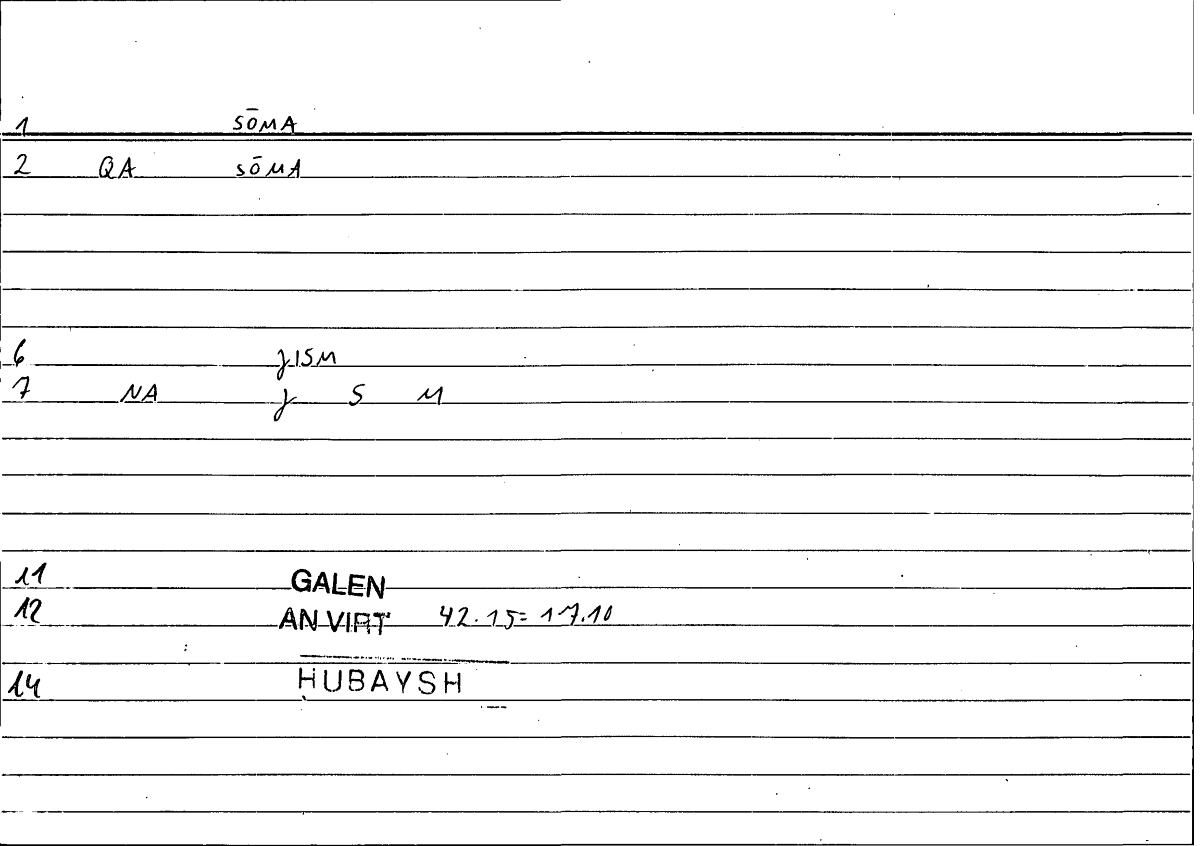 1 SŌMA
2 QA SŌMA
6 JISM
7 NA J S M
11 GALEN
12 AN VIRT 42.15=17.10
14 HUBAYSH